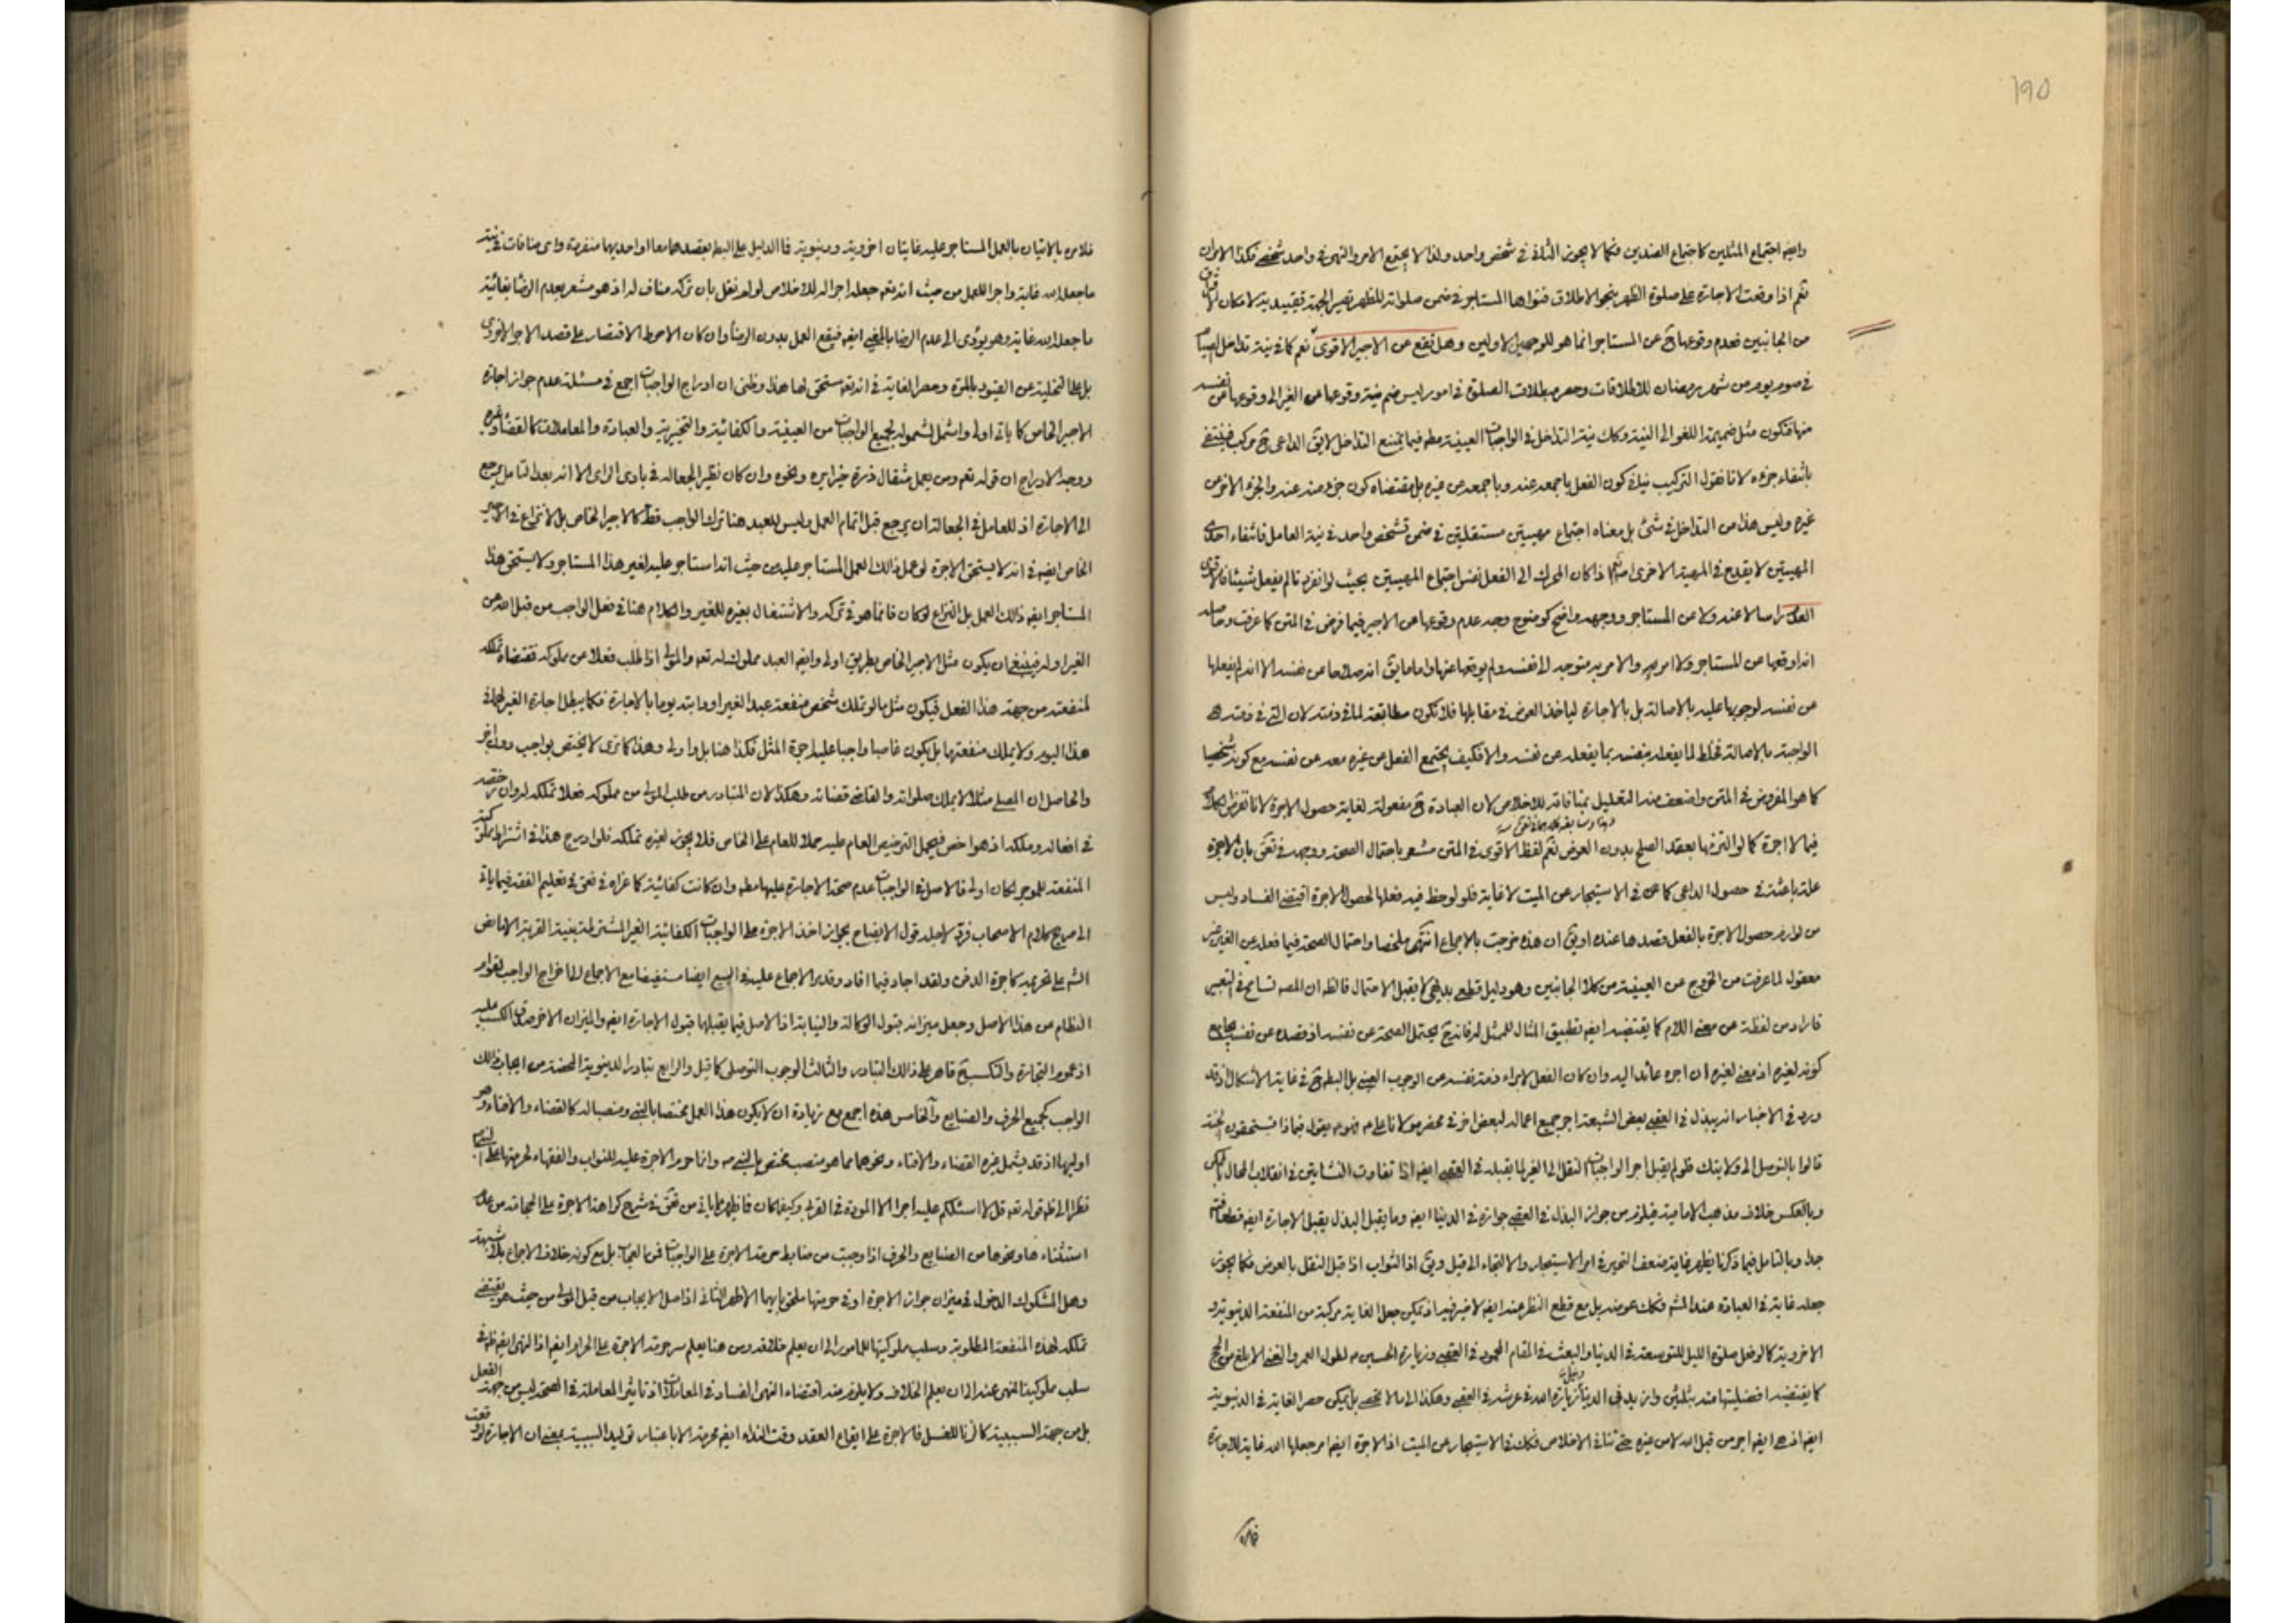 ١٩٥
وايضا اجتماع المثلين كاجتماع الضدين فكما لا يجوز الثانى فى شخص واحد ولذا لا يجتمع الامر والنهى فى واحد شخصى فكذا الامران
نعم اذا وقعت الاجارة على صلوة الظهر بنحو الاطلاق فنواها المستاجر فى ضمن صلواته للظهر تصير الجهة تقييدية لامكان
من الجانبين فعدم وقوعها ح عن المستاجر انما هو للوجهين الاولين وهل تقع عن الاجير الاقوى نعم كما فى نية تداخل
فى صوم يوم من شهر رمضان للاطلاقات وحصر مبطلات الصلوة فى امور ليس ضم نية وقوعها عن الغير الى وقوعها عن نفسه
منها فتكون مثل ضميمة اللغو الى النية وكك نية التداخل فى الواجبات العينية مطم فيما يمتنع التداخل لا يق الداعى ح مركب فينتفى
بانتفاء جزءه لانا نقول التركيب كون الفعل باجمعه عنه وباجمعه عن غيره بل مقتضاه كون جزء منه عنه والجزء الاخر عن
غيره وليس هذا من التداخل فى شئ بل معناه اجتماع مهيتين مستقلتين فى ضمن تشخص واحد فى نية العامل فانتفاء احدى
المهيتين لا يقدح فى المهية الاخرى اذا كان المحرك الى الفعل نفس اجتماع المهيتين بحيث لو انفرد تا لم يفعل شيئا
راسا لا عنه ولا عن المستاجر ووجهه واضح كوضوح وجه عدم وقوعها عن الاجير فيما فرض فى المتن كما عرفت وحاصله
انه اوقعها عن المستاجر ولا امر به والامر به متوجه الى نفسه ولم يوقعها عنها واما ما يق انه صلاها عن نفسه الا انه لم يفعلها
عن نفسه لوجوبها عليه بالاصالة بل بالاجارة لياخذ العوض فى مقابلها فلا تكون مطابقة لما فى ذمته لان التى فى ذمته هى
الواجبة بالاصالة فخلط لما يفعله بنفسه بما يفعله عن نفسه والا فكيف يجتمع الفعل عن غيره معه عن نفسه مع كونه شخصيا
كما هو المفروض فى المتن واضعف منه التعليل بمنافاته للاخلاص لان العبادة ح مفعولة لغاية حصول الاجرة لانا نفرض الكلام
فيما لا اجرة كما لو التزم بها بعقد الصلح بدون العوض نعم لفظ الاقوى فى المتن مشعر باحتمال الصحة ووجهه بان الاجرة
علة باعثة فى حصول الداعى كما عن فى الاستيجار عن الميت لا غاية فلو لوحظ فيه فعلها لحصول الاجرة اقتضى الفساد وليس
من لوازم حصول الاجرة بالفعل قصدها عنده او يق ان هذه خرجت بالاجماع انتهى ملخصا واحتمال الصحة فيما فعله عن الغير غير
معقول لما عرفت من الخروج عن العينية من كلا الجانبين وهو دليل قطعى بديهى لا يقبل الاحتمال فالظ ان المصه تسامح فى التعبير
فاراد من لفظة عن معنى اللام كما يقتضيه ايضا تطبيق المثال للممثل له فانه ح يحتمل الصحة عن نفسه اذ قصده عن نفسه
كونه لغيره اذ معنى لغيره ان اجره عائد اليه وان كان الفعل لابراء ذمة نفسه عن الوجوب العينى بل البطم ح فى غاية الاشكال اذ قد
ورد فى الاخبار انه يبذل فى العقبى بعض الشيعة اجر جميع اعماله لبعض اخر فى محضر مولانا على فهو يقول فبماذا تستحقون الجنة
قالوا بالتوسل الى ولايتك فلو لم يقبل اجر الواجبات النقل الى الغير لما يقبله فى العقبى ايضا اذا تفاوت النشاتين فى انقلاب المحال بالممكن
وبالعكس خلاف مذهب الامامية فيلزم من جواز البذل فى العقبى جوازه فى الدنيا ايضا وما يقبل البذل يقبل الاجارة ايضا قطعا
جدا وبالتامل فيما ذكرنا يظهر غاية ضعف التحير فى امر الاستيجار والالتجاء الى قيل ويق اذ الثواب اذا قبل النقل بالعوض فكما يجوز
جعله غاية فى العبادة عند المشه فكك عوضه بل مع قطع النظر عنه ايضا لا ضير فيه اذ يمكن جعل الغاية مركبة من المنفعة الدنيوية و
الاخروية كما لو فعل صلوة الليل للتوسعة فى الدنيا والبعث فى المقام المحمود فى العقبى وزيارة الحسين لطول العمر والغنى الابلغ من الحج
كما يقتضيه افضليتها منه بثلثين وازيد فى الدنيا زيارة الله فى عرشه فى العقبى وهكذا الى ما لا يحصى بل يمكن حصر الغاية فى الدنيوية
ايضا اذ هى ايضا اجر من قبل الله لا من غيره حتى تنافى الاخلاص فكك فى الاستيجار عن الميت اذ الاجرة ايضا امر جعلها الله غاية للاجارة
فلا من بالاتيان بالعمل المستاجر عليه غايتان اخروية ودنيوية فما الدليل على البطم بقصدهما معا او احديهما منفردة واى منافات فى نية
ما جعل الله غاية واجرا للعمل من حيث انه تعم جعله اجرا له للاخلاص لو لم نقل بان تركه مناف له اذ هو مشعر بعدم الرضا بغائية
ما جعل الله غاية وهو يؤدى الى عدم الرضا بالمغيى ايضا فيقع العمل بدون الرضا وان كان الاحوط الاقتصار على قصد الاجر الاخروى
بل على التخلية عن القيود بالمرة وحصر الغاية فى انه تعم مستحق لها هذا وظنى ان ادراج الواجبات اجمع فى مسئلة عدم جواز اجارة
الاجير الخاص كما ياتى اولى واشمل لشموله لجميع الواجبات من العينية والكفائية والتخيرية والعبادة والمعاملات كالقضاء وغيره
ووجه الادراج ان قوله تعم ومن يعمل مثقال ذرة خيرا يره ونحوه وان كان نظير الجعالة فى بادى الراى الا انه بعد التامل يرجع
الى الاجارة اذ للعامل فى الجعالة ان يرجع قبل اتمام العمل وليس للعبد هنا ترك الواجب قط كالاجير الخاص بل لا نزاع فى الاجير
الخاص ايضا فى انه لا يستحق الاجرة لو عمل ذلك العمل المستاجر عليه من حيث انه استاجر عليه لغير هذا المستاجر ولا يستحق هذا
المستاجر ايضا ذلك العمل بل النزاع لو كان فانما هو فى تركه والاشتغال بغيره للغير والكلام هنا فى فعل الواجب من قبل الله عن
الغير او له فينبغى ان يكون مثل الاجير الخاص بطريق اولى وايضا العبد مملوك له تعم والمولى اذا طلب فعلا من مملوكه فمقتضاه تملكه
لمنفعته من جهة هذا الفعل فيكون مثل ما لو تملك شخص منفعة عبد الغير او دابته يوما بالاجارة فكما يبطل اجارة الغير لهما فى
هذا اليوم ولا يملك منفعتها بل يكون غاصبا واجبا عليه اجرة المثل فكذا هنا بل واولى وهذا كما ترى لا يختص بواجب دون اخر
والحاصل ان المصلى مثلا لا يملك صلواته والقاضى قضائه وهكذا لان المتبادر من طلب المولى من مملوكه فعلا تملكه له وان رخصه
فى افعاله وملكه اذ هو اخص فيحمل الترخيص العام عليه حملا للعام على الخاص فلا يجوز لغيره تملكه فلو ادرج هذا فى اشتراط
المنفعة للموجر لكان اولى فالاصل فى الواجبات عدم صحة الاجارة عليها مطم وان كانت كفائية كما عزاه فى تعليم الفقه فيما ياتى
الى صريح كلام الاصحاب فرد لاجله قول الايضاح بجواز اخذ الاجرة على الواجبات الكفائية الغير المشترطة بنية القربة الا ما نص
الشه على تحريمه كاجرة الدفن ولقد اجاد فيما افاد وقد مر الاجماع عليه فى البيع ايضا مستفيضا مع الاجماع اخراج الواجب لقوام
النظام من هذا الاصل وجعل ميزانه قبول الوكالة والنيابة اذ الاصل فيما يقبلها قبول الاجارة ايضا والميزان الاخر صدق الكسب عليه
اذ عموم التجارة والتكسب ح قاهر على ذلك التبادر والثالث الوجوب التوصلى كما قيل والرابع تبادر الدنيوية المحضة من ايجاب ذلك
الواجب كجميع الحرف والصنايع والخامس هذه اجمع مع زيادة ان لا يكون هذا العمل مختصا بالنبى ومنصبا له كالقضاء والافتاء وهو
اوليها اذ قد يشمل غيره القضاء والافتاء ونحوهما مما هو منصب مختص بالنبى وانما حرم الاجرة عليه للنواب والفقهاء لحرمتها على
نظرا الى ظه قوله تعم قل لا اسئلكم عليه اجرا الا المودة فى القربى وكيفما كان فاظهر ما ياتى من فى شرح كراهة الاجرة على الحجامة من
استثناء ها ونحوها من الصنايع والحرف اذا وجبت من ضابط حرمة الاجرة على الواجبات بل مع كونه خلاف الاجماع بلا شبهة
وهل المشكوك الدخول فى ميزان جواز الاجرة او فى حرمتها ملحق بايهما الاظهر الثانى اذ اصل الايجاب من قبل المولى من حيث هو يقتضى
تملكه لهذه المنفعة المطلوبة وسلب مملوكيتها للمامور الى ان يعلم خلافه ومن هنا يعلم سر حرمة الاجرة على الحرام ايضا اذ النهى ايضا ظ فى
سلب مملوكية المنهى عنه الى ان يعلم الخلاف ولا يلزم منه اقتضاء النهى الفساد فى المعاملات اذ تاثير المعاملة فى الصحة ليس من جهة الفعل
بل من جهة السببية كالزنا للغسل فالاجرة على ايقاع العقد وقت النداء ايضا محرمة الا باعتبار توليد السببية بمعنى ان الاجارة لو وقعت